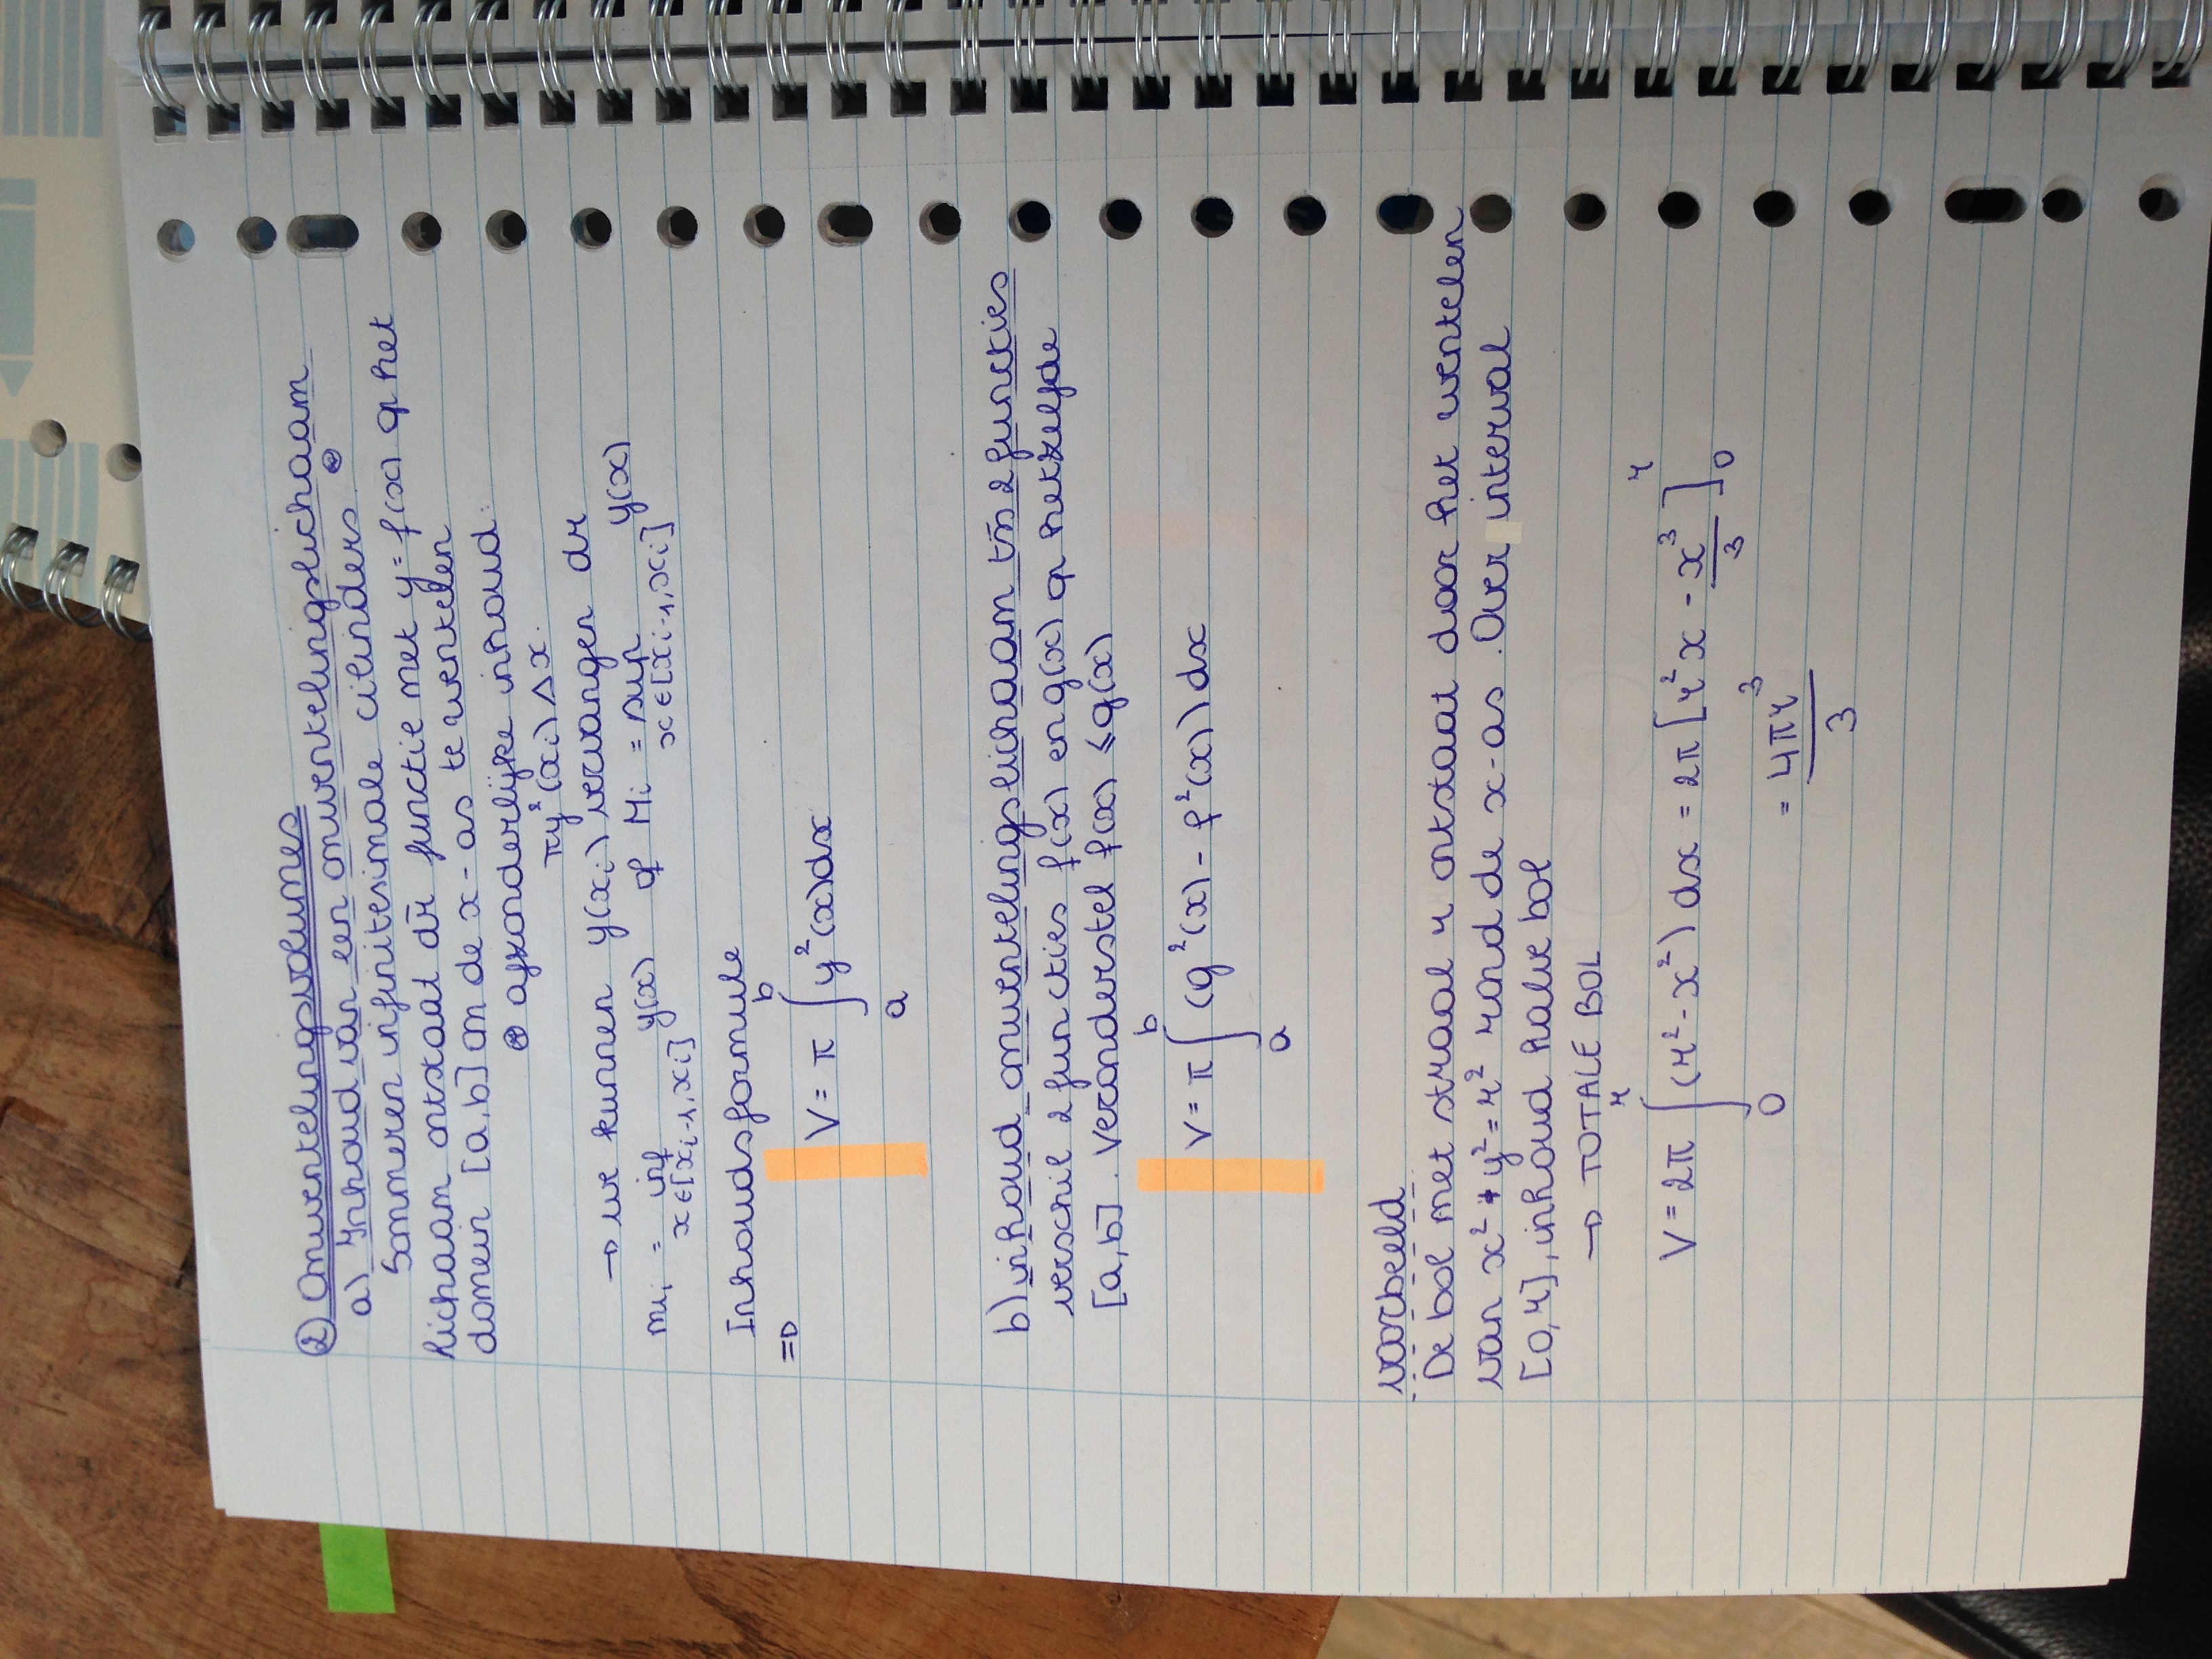 ② Omwentelingsvolumes
a) Inhoud van een omwentelingslichaam
Sommeren infinitesimale cilinders. ⊛
lichaam ontstaat dr functie met y = f(x) op het
domein [a,b] om de x-as te wentelen
⊛ afzonderlijke inhoud:
πy²(xᵢ) Δx.
→ we kunnen y(xᵢ) vervangen dr
mᵢ = inf y(x) of Mᵢ = sup y(x)
x∈[xᵢ₋₁,xᵢ] x∈[xᵢ₋₁,xᵢ]
Inhoudsformule
=> V = π ∫ₐᵇ y²(x)dx
b) inhoud omwentelingslichaam tss 2 functies
verschil 2 functies f(x) en g(x) op hetzelfde
[a,b]. Veronderstel f(x) ≤ g(x)
V = π ∫ₐᵇ (g²(x) - f²(x)) dx
voorbeeld
De bol met straal r ontstaat door het wentelen
van x² + y² = r² rond de x-as. Over interval
[0,r], inhoud halve bol
→ TOTALE BOL
V = 2π ∫₀ʳ (r² - x²) dx = 2π [r²x - x³/3]₀ʳ
= 4πr³/3